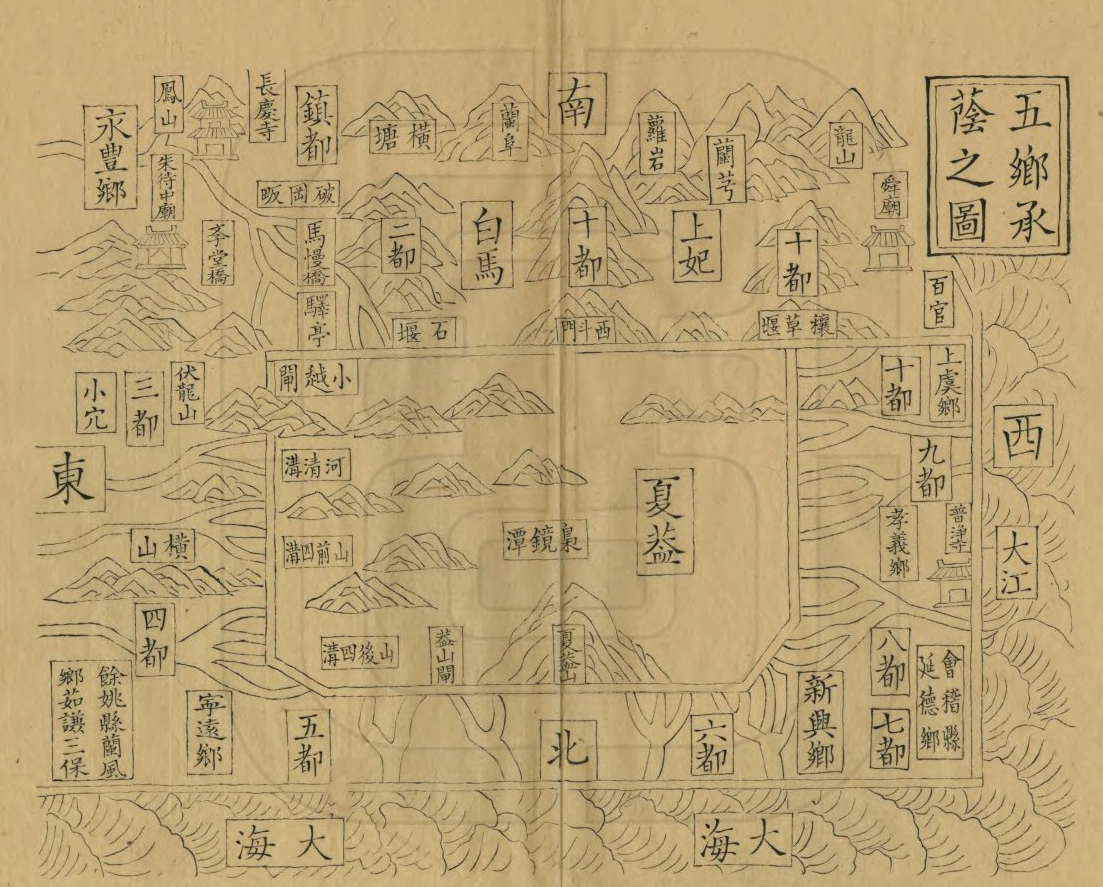 五鄉承
蔭之圖
南
長慶寺
鳳山
鎮都
永豊鄉
朱待中廟
橫塘
蘭阜
蘿岩
蘭芎
龍山
舜廟
破岡畈
馬慢橋
驛亭
李堂橋
二都
白馬
十都
上妃
十都
百官
石堰
西斗門
穰草堰
小越閘
伏龍山
三都
小穴
十都
上虞鄉
西
東
河清溝
九都
夏蓋
孝義鄉
普淨寺
大江
橫山
山前四溝
梟鏡潭
四都
山後四溝
蓋山閘
夏蓋山
八都
會稽縣
延德鄉
餘姚縣蘭風
鄉茹謙三保
寧遠鄉
五都
北
六都
新興鄉
七都
大海
大海